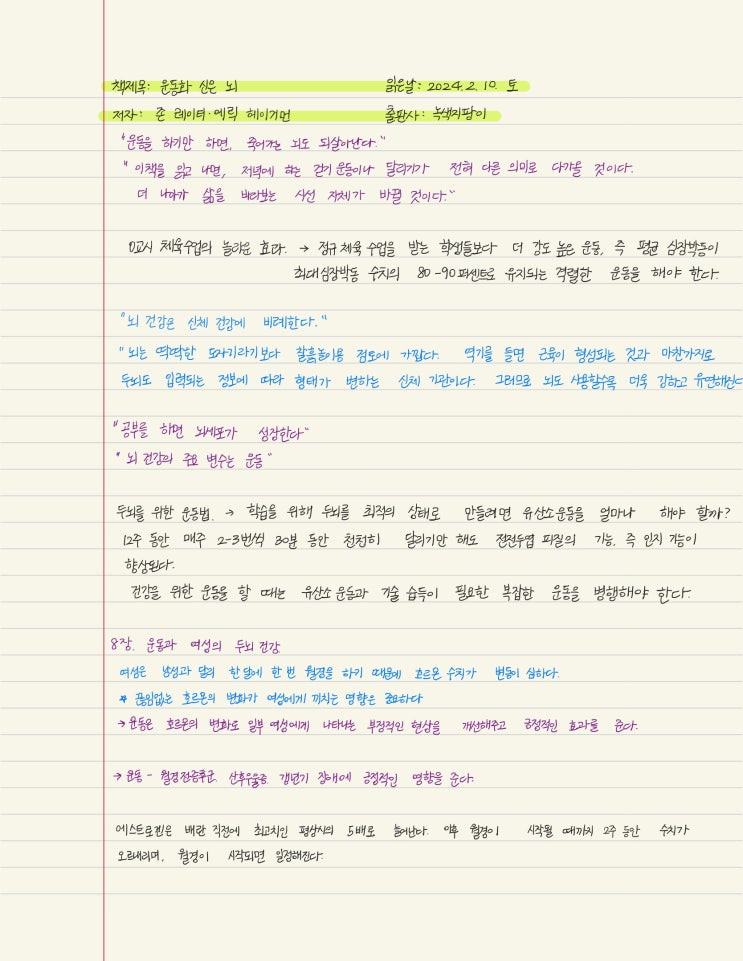 책제목: 운동화 신은 뇌 읽은날: 2024. 2. 10. 토
저자: 존 레이티·에릭 헤이거먼 출판사: 녹색지팡이
"운동을 하기만 하면, 죽어가는 뇌도 되살아난다."
"이책을 읽고 나면, 저녁에 하는 걷기 운동이나 달리기가 전혀 다른 의미로 다가올 것이다.
더 나아가 삶을 바라보는 시선 자체가 바뀔 것이다."
0교시 체육수업의 놀라운 효과. → 정규체육 수업을 받는 학생들보다 더 강도 높은 운동, 즉 평균 심장박동이
최대심장박동 수치의 80-90퍼센트로 유지되는 격렬한 운동을 해야 한다.
"뇌 건강은 신체 건강에 비례한다."
"뇌는 딱딱한 도자기라기보다 찰흙놀이용 점토에 가깝다. 역기를 들면 근육이 형성되는 것과 마찬가지로
두뇌도 입력되는 정보에 따라 형태가 변하는 신체 기관이다. 그러므로 뇌도 사용할수록 더욱 강하고 유연해진다
"공부를 하면 뇌세포가 성장한다"
"뇌 건강의 주요 변수는 운동"
두뇌를 위한 운동법. → 학습을 위해 두뇌를 최적의 상태로 만들려면 유산소운동을 얼마나 해야 할까?
12주 동안 매주 2-3번씩 30분 동안 천천히 달리기만 해도 전전두엽 피질의 기능, 즉 인지 기능이
향상된다.
건강을 위한 운동을 할 때는 유산소 운동과 기술 습득이 필요한 복잡한 운동을 병행해야 한다.
8장. 운동과 여성의 두뇌 건강
여성은 남성과 달리 한 달에 한 번 월경을 하기 때문에 호르몬 수치가 변동이 심하다.
* 끊임없는 호르몬의 변화가 여성에게 끼치는 영향은 중요하다
→ 운동은 호르몬의 변화로 일부 여성에게 나타나는 부정적인 현상을 개선해주고 긍정적인 효과를 준다.
→ 운동 - 월경전증후군, 산후우울증, 갱년기 장애에 긍정적인 영향을 준다.
에스트로겐은 배란 직전에 최고치인 평상시의 5배로 늘어난다. 이후 월경이 시작될 때까지 2주 동안 수치가
오르내리며, 월경이 시작되면 일정해진다.